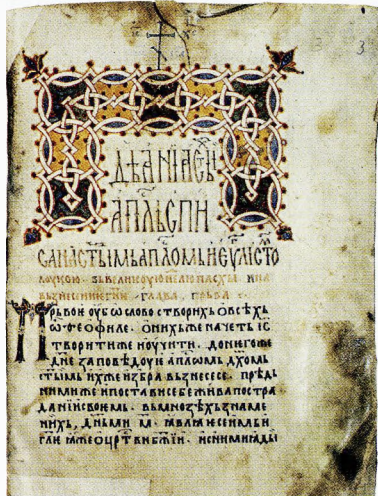 3
дѣꙗніа сты
апⷭль спи
сана стымь апⷭломь и еѵлисто
лꙋкою· въ великꙋю нелю пасхы и на
възнесение гне глава прьва
Прьвои оубѡ слово створихь ѡ всѣхь
ѡ ѳеофиле· ѡ нихьже начеть іс
творити же и оучити· до негоже
дне заповѣдоуіе апломь дхомь
стымь ихже избра вьзнесе се· прѣдь
нимиже и постави себе жива по стра
даніи своемь· вь мнозѣхь знаме
нихь, дньми м· ꙗвлꙗꙗ се имь и
гли ꙗже о црт҇ви бжіи· и с ними ꙗды